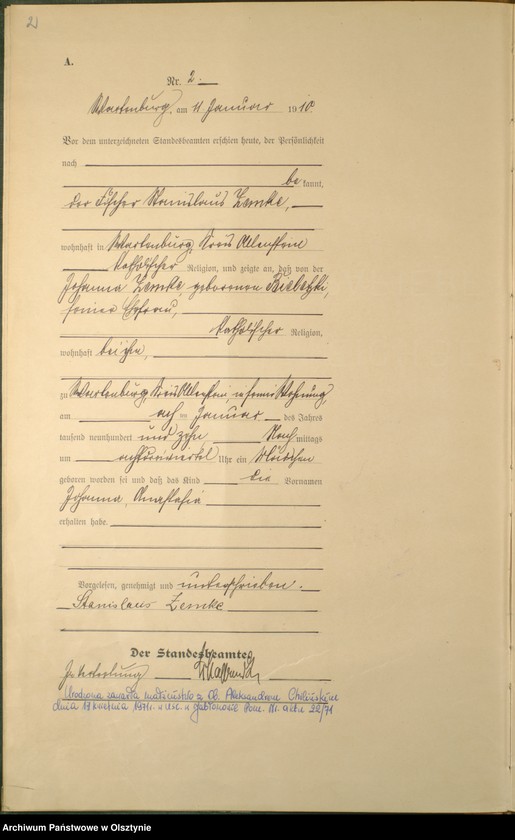 2
A.
Nr. 2.
Wartenburg, am 4 Januar 1910
Vor dem unterzeichneten Standesbeamten erschien heute, der Persönlichkeit
nach
be kannt,
der Fischer Stanislaus Zemke,
wohnhaft in Wartenburg, Kreis Allenstein
katholischer Religion, und zeigte an, daß von der
Johanna Zemke geborenen
seiner Ehefrau,
katholischer Religion,
wohnhaft bei ihm,
zu Wartenburg, Kreis Allenstein, in seiner Wohnung
am Januar des Jahres
tausend neunhundert und zehn Nach mittags
um Uhr ein Mädchen
geboren worden sei und daß das Kind die Vornamen
Johanna, Anastasia
erhalten habe.
Vorgelesen, genehmigt und unterschrieben.
Stanislaus Zemke
Der Standesbeamte
In Vertretung
Urodzona zawarła małżeństwo z Ob. Aleksandrem
dnia kwietnia 1971r. w USC w Jabłonowie Pom. Nr. aktu 22/71
Archiwum Państwowe w Olsztynie